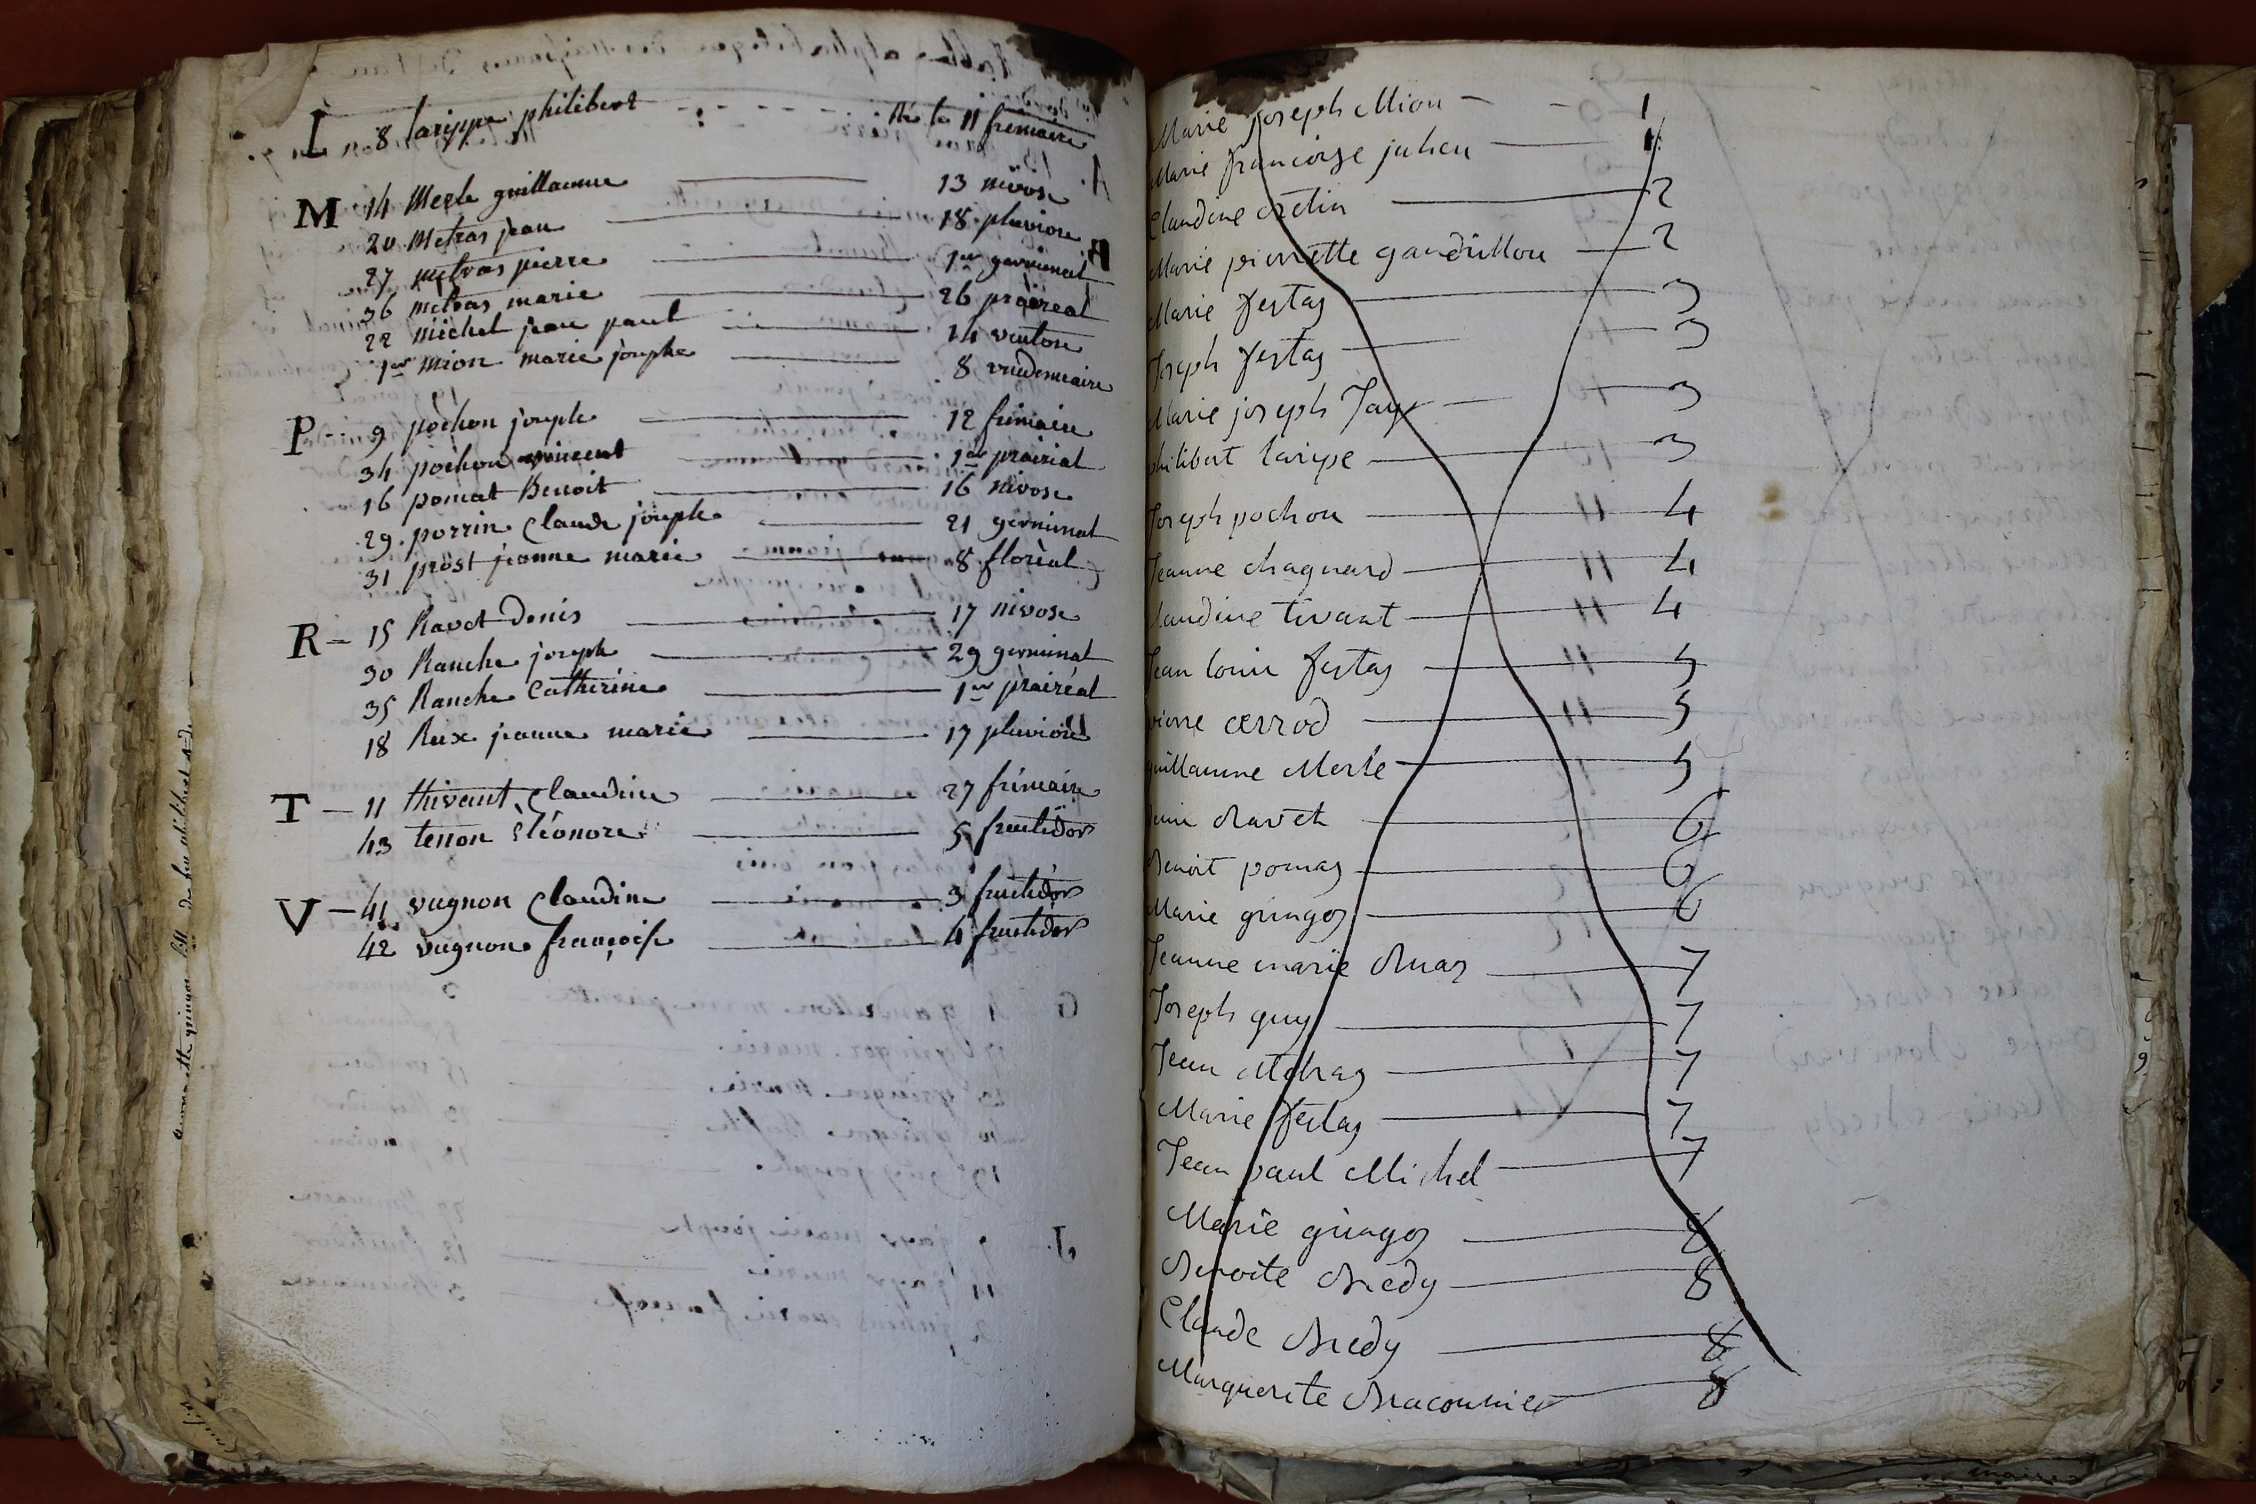 L n° 8 larippe philibert né le 11 frimaire
M 14 Merle guillaume 13 nivose
20 metras jean 18 pluviose
27 metras pierre 1er germinal
36 metras marie 26 prairéal
22 michel jean paul 14 ventose
1er mion marie josephe 8 vendemiaire
P 9 pochon joseph 12 frimaire
34 pochon vincent 1er prairial
16 pomat Benoit 16 nivose
29 perrin Claude joseph 21 germinal
31 prost jeanne marie 8 floréal
R 15 Ravet Denis 17 nivose
30 Ranche joseph 29 germinal
35 Ranche Catherine 1er prairéal
18 Rux jeanne marie 17 pluviose
T 11 thivant Claudine 27 frimaire
43 tenon Eléonore 5 fructidor
V 41 vugnon Claudine 3 fructidor
42 vugnon françoise 4 fructidor
Marie joseph Mion 1
Marie françoise julien 1
Claudine cretin 2
Marie pierrette gandrillon 2
Marie festas 3
Joseph festas 3
Marie joseph Jays 3
philibert laripe 3
Joseph pochon 11 4
Jeanne chagnard 11 4
laudine tivant 11 4
Jean louis festas 11 5
pierre cerrod 11 5
guillaume Merle 5
Denis Ravet 6
Benoit pomas 6
Marie gringoz 6
Jeanne marie Ruaz 7
Joseph guy 7
Jean Metraz 7
Marie festas 7
Jean paul Michel 7
Marie gringoz 8
Benoite Bredy 8
Claude Bredy 8
Marguerite Braconnier 8